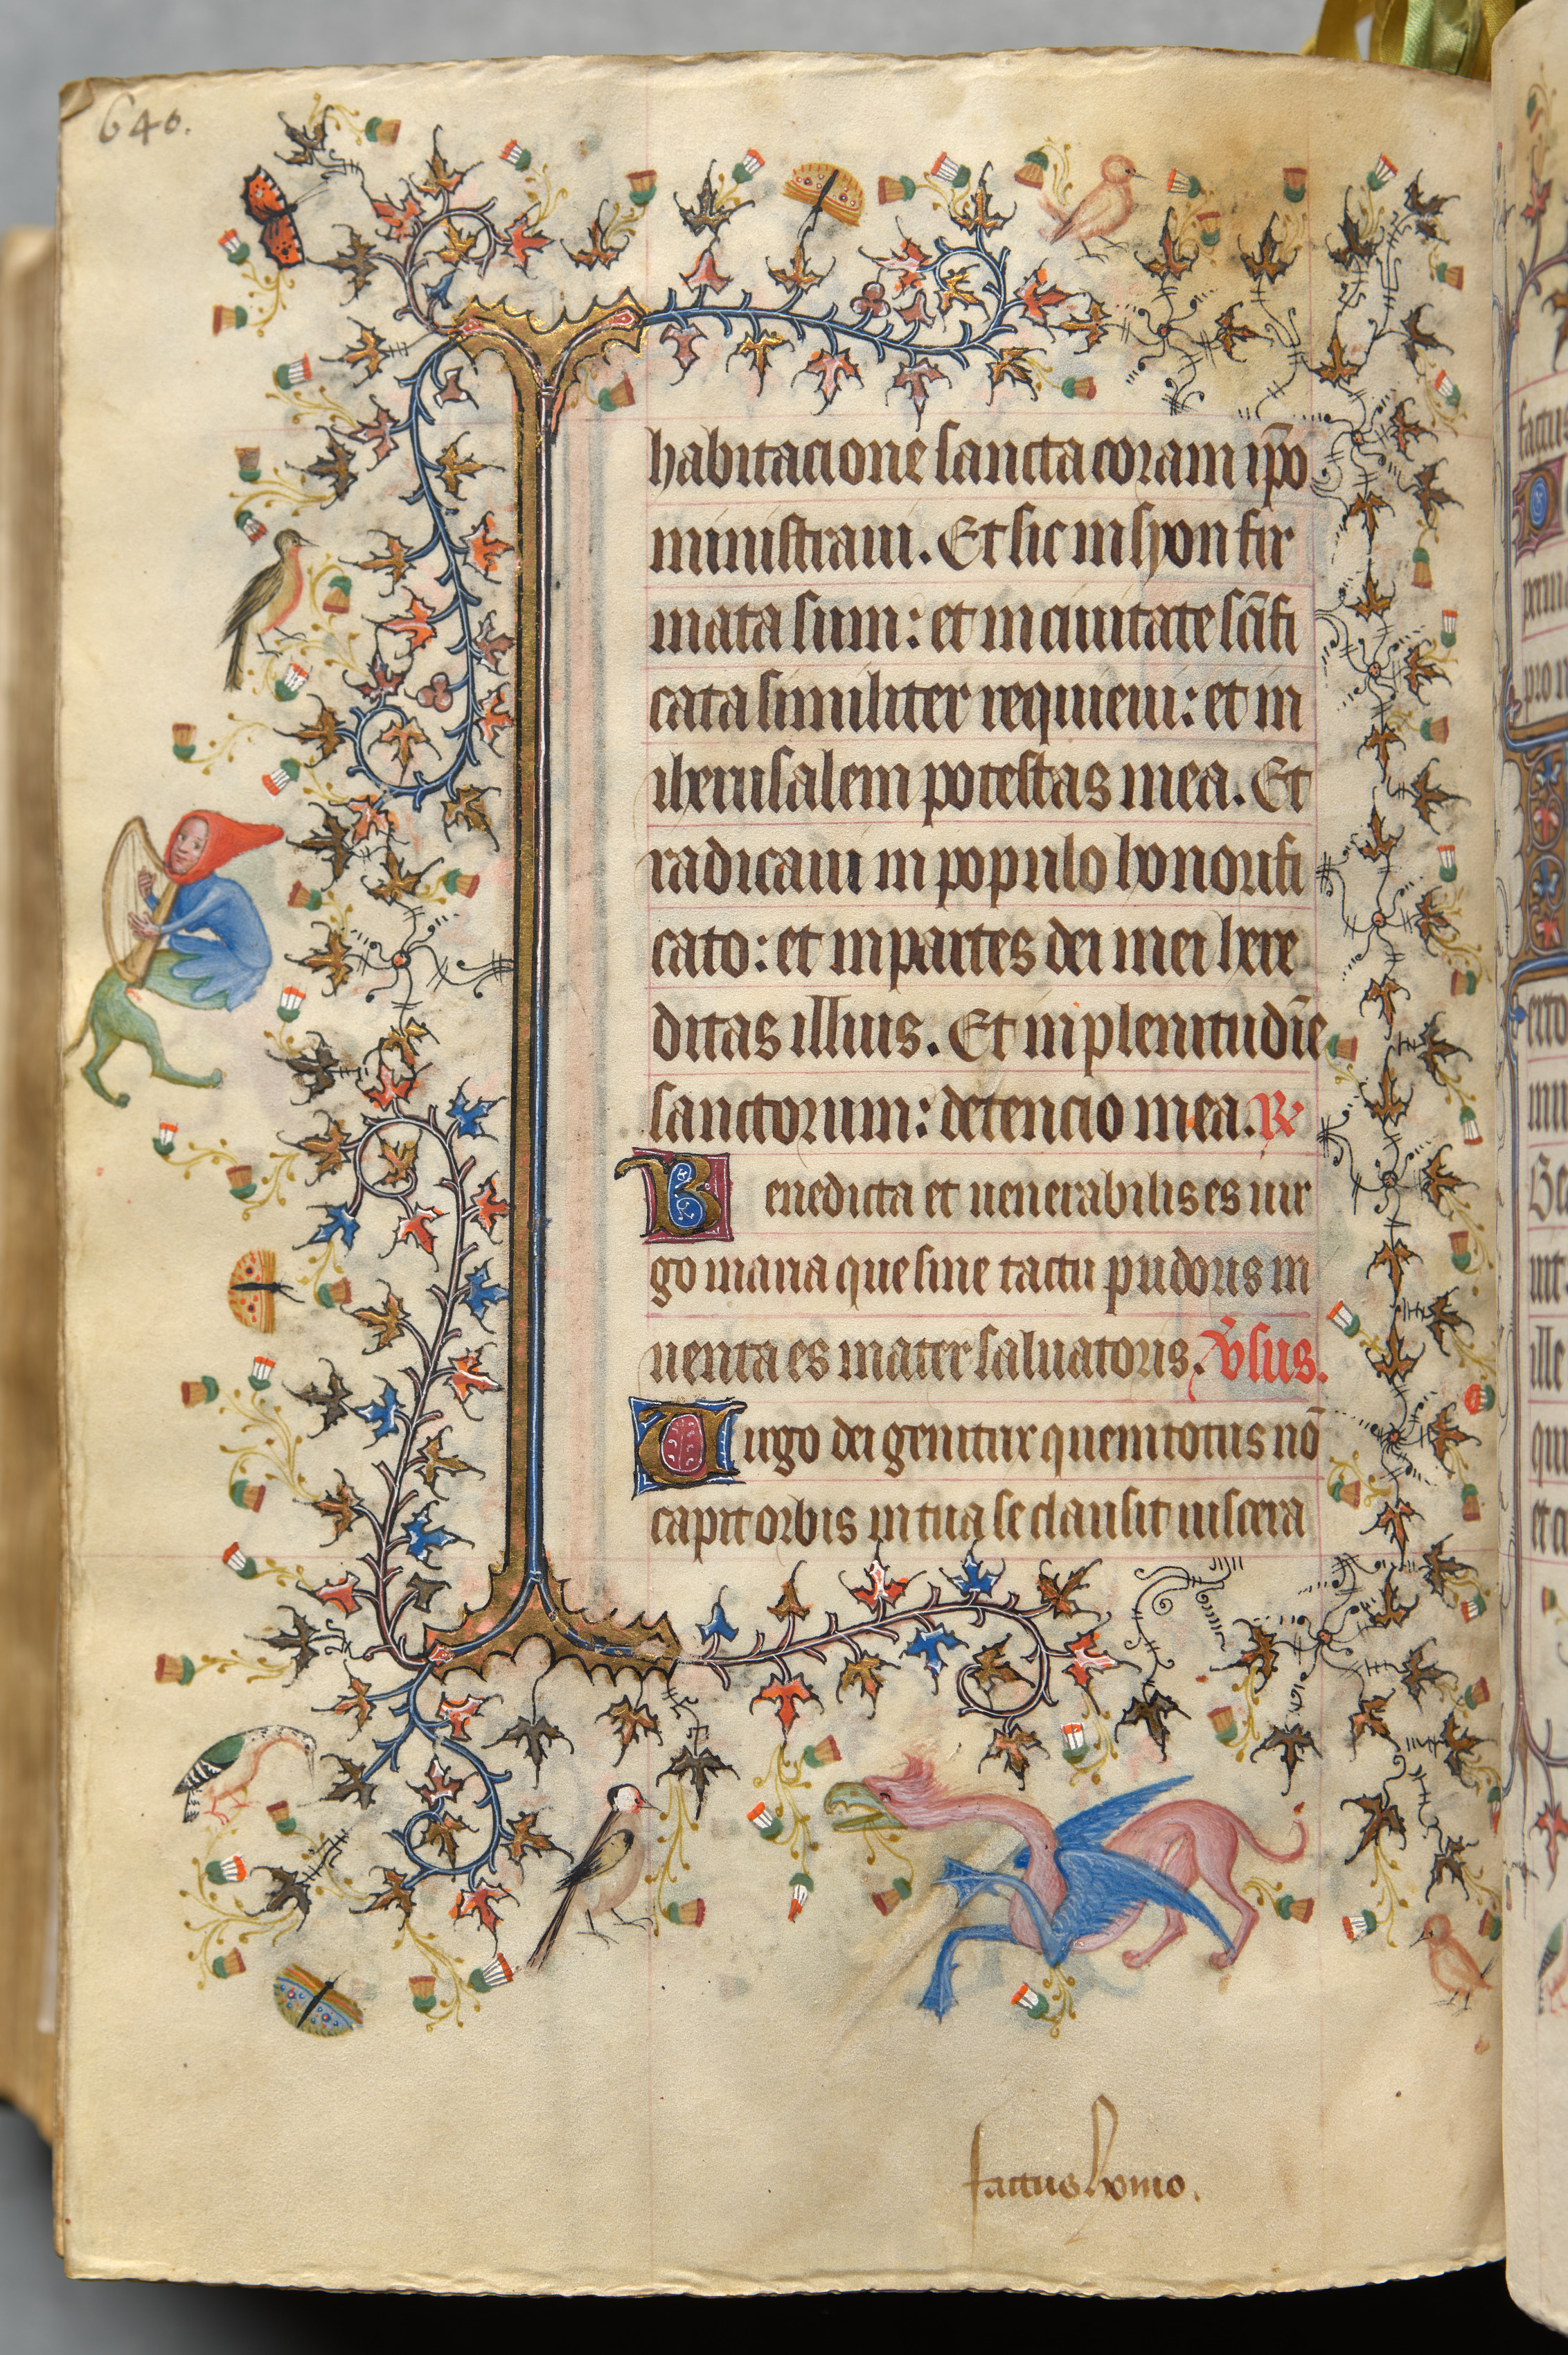 640.
habitacione sancta coram ip̄o
ministraui. Et sic in syon fir
mata sum: et in ciuitate sc̄ifi
cata similiter requieui: et in
iherusalem potestas mea. Et
radicaui in populo honorifi
cato: et in partes dei mei here
ditas illius. Et in plenitudīe
sanctorum: detencio mea. ℟
Benedicta et uenerabilis es uir
go maria que sine tactu pudoris in
uenta es mater saluatoris. v̄sus.
Uirgo dei genitrix quem totus nō
capit orbis in tua se clausit uiscera
factus homo.